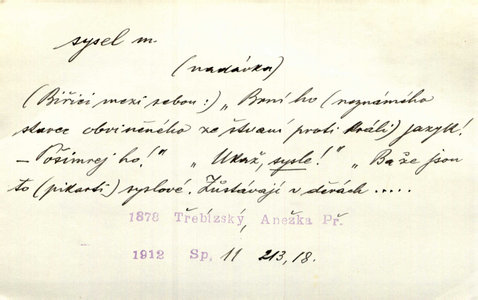 sysel m.
(nadávka)
(Biřici mezi sebou:) „Brní ho (neznámého
starce obviněného ze štvaní proti králi) jazyk!
– Pošimrej ho!" „Ukaž, sysle!" „Ba že jsou
to (pikarti) syslové. Zůstávají v děrách .....
1878 Třebízský, Anežka Př.
1912 Sp. 11 213,18.